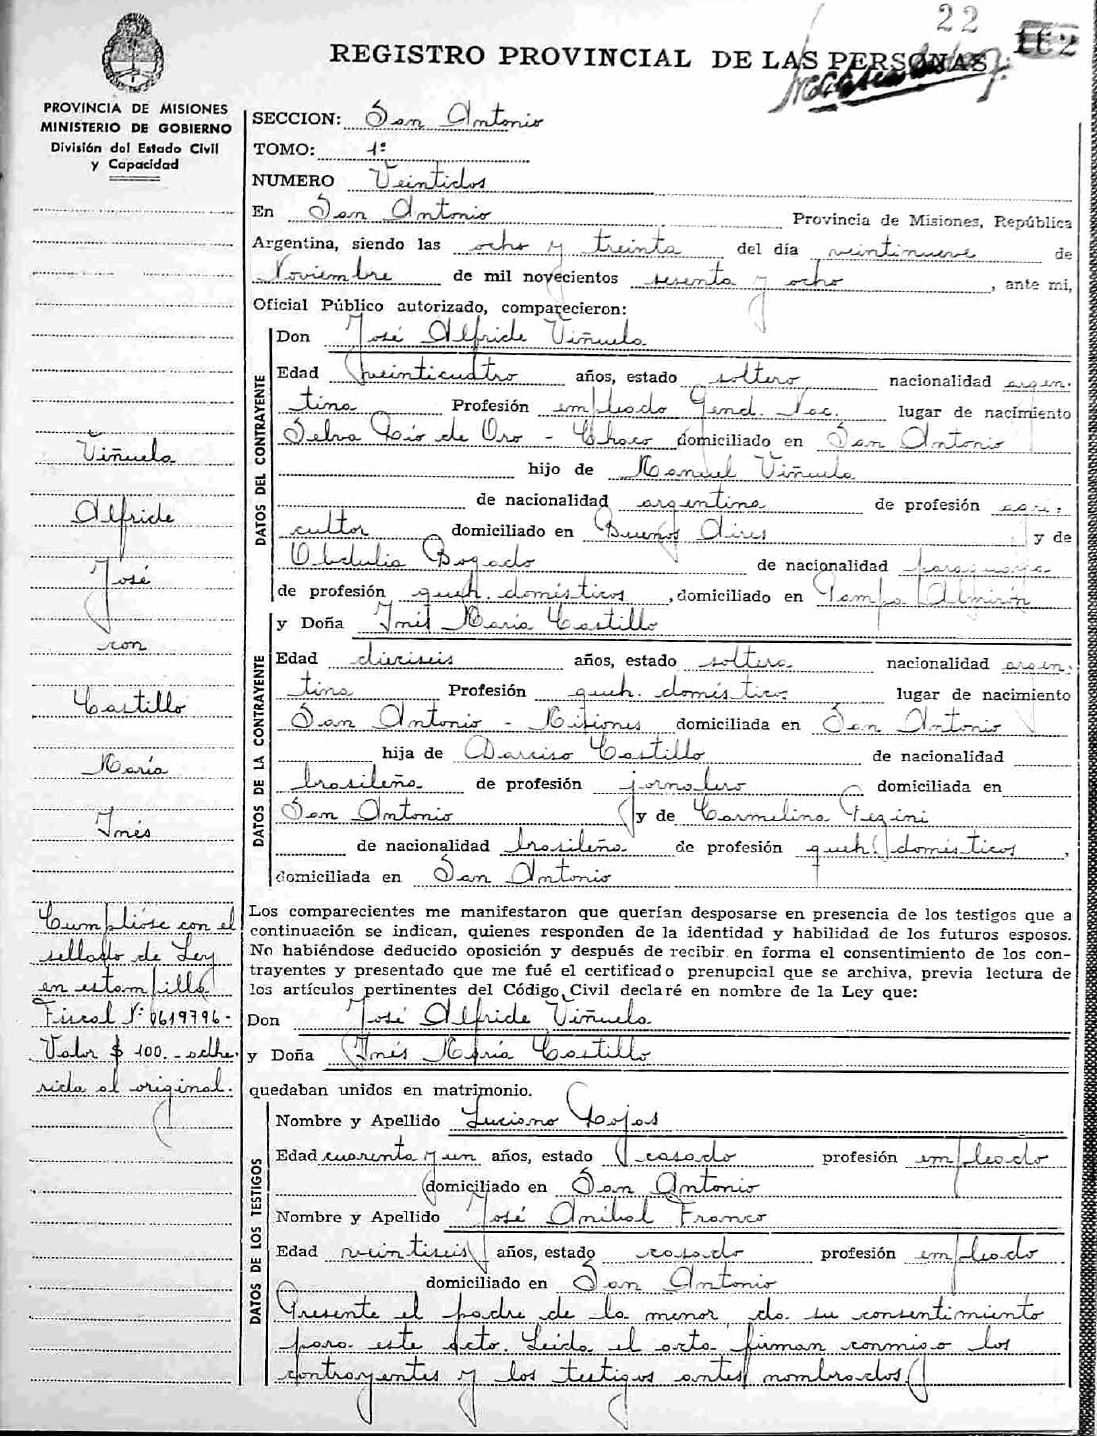 22
112
REGISTRO PROVINCIAL DE LAS PERSONAS
PROVINCIA DE MISIONES
MINISTERIO DE GOBIERNO
División del Estado Civil
y Capacidad
SECCION: San Antonio
TOMO: 1º
NUMERO Veintidos
En San Antonio Provincia de Misiones, República
Argentina, siendo las ocho y treinta del día veintinueve de
Noviembre de mil novecientos sesenta y ocho, ante mi,
Oficial Público autorizado, comparecieron:
DATOS DEL CONTRAYENTE
Don José Alfride Viñuela
Edad veinticuatro años, estado soltero nacionalidad argen-
tina Profesión empleado Gend. Nac. lugar de nacimiento
Selva Río de Oro - Chaco domiciliado en San Antonio
hijo de Manuel Viñuela
de nacionalidad argentina de profesión agri-
cultor domiciliado en Buenos Aires y de
Obdulia Bogado de nacionalidad paraguaya
de profesión queh. domésticos, domiciliado en Pampa Almirón
DATOS DE LA CONTRAYENTE
y Doña Inés María Castillo
Edad dieciseis años, estado soltera nacionalidad argen-
tina Profesión queh. domésticos lugar de nacimiento
San Antonio - Misiones domiciliada en San Antonio
hija de Narciso Castillo de nacionalidad
brasileña de profesión jornalero domiciliada en
San Antonio y de Carmelina
de nacionalidad brasileña de profesión queh. domésticos,
domiciliada en San Antonio
Los comparecientes me manifestaron que querían desposarse en presencia de los testigos que a
continuación se indican, quienes responden de la identidad y habilidad de los futuros esposos.
No habiéndose deducido oposición y después de recibir en forma el consentimiento de los con-
trayentes y presentado que me fué el certificado prenupcial que se archiva, previa lectura de
los artículos pertinentes del Código Civil declaré en nombre de la Ley que:
Don José Alfride Viñuela
y Doña Inés María Castillo
quedaban unidos en matrimonio.
DATOS DE LOS TESTIGOS
Nombre y Apellido Luciano Rojas
Edad cuarenta y un años, estado casado profesión empleado
domiciliado en San Antonio
Nombre y Apellido José Anibal Franco
Edad veintiseis años, estado casado profesión empleado
domiciliado en San Antonio
Presente el padre de la menor, da su consentimiento
para este acto. Leida el acta firman conmigo los
contrayentes y los testigos antes nombrados
Viñuela
Alfride
José
con
Castillo
María
Inés
Cumplióse con el
sellado de Ley
en estampilla
Fiscal Nº 0619796-
Valor $ 100.- adhe-
rida al original.